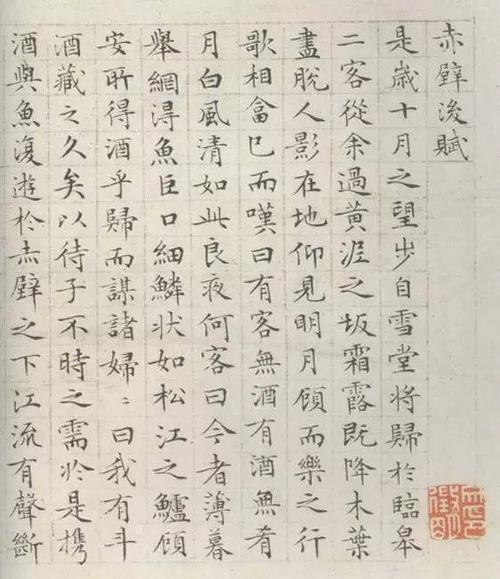 赤壁後賦
是歲十月之望步自雪堂將歸於臨皋
二客從余過黃泥之坂霜露既降木葉
盡脫人影在地仰見明月顧而樂之行
歌相畣已而嘆曰有客無酒有酒無肴
月白風清如此良夜何客曰今者薄暮
舉網得魚巨口細鱗狀如松江之鱸顧
安所得酒乎歸而謀諸婦〻曰我有斗
酒藏之久矣以待子不時之需於是携
酒與魚復遊於赤壁之下江流有聲斷